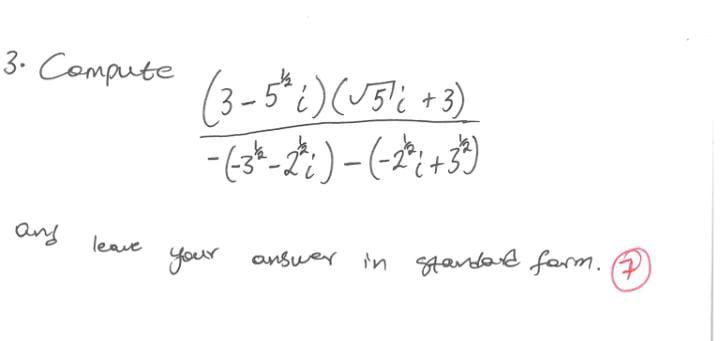 3. Compute
(3 - 5^½ i)(√5 i + 3)
-(-3^½ - 2^½ i) - (-2^½ i + 3^½)
and leave your answer in standard form. (7)